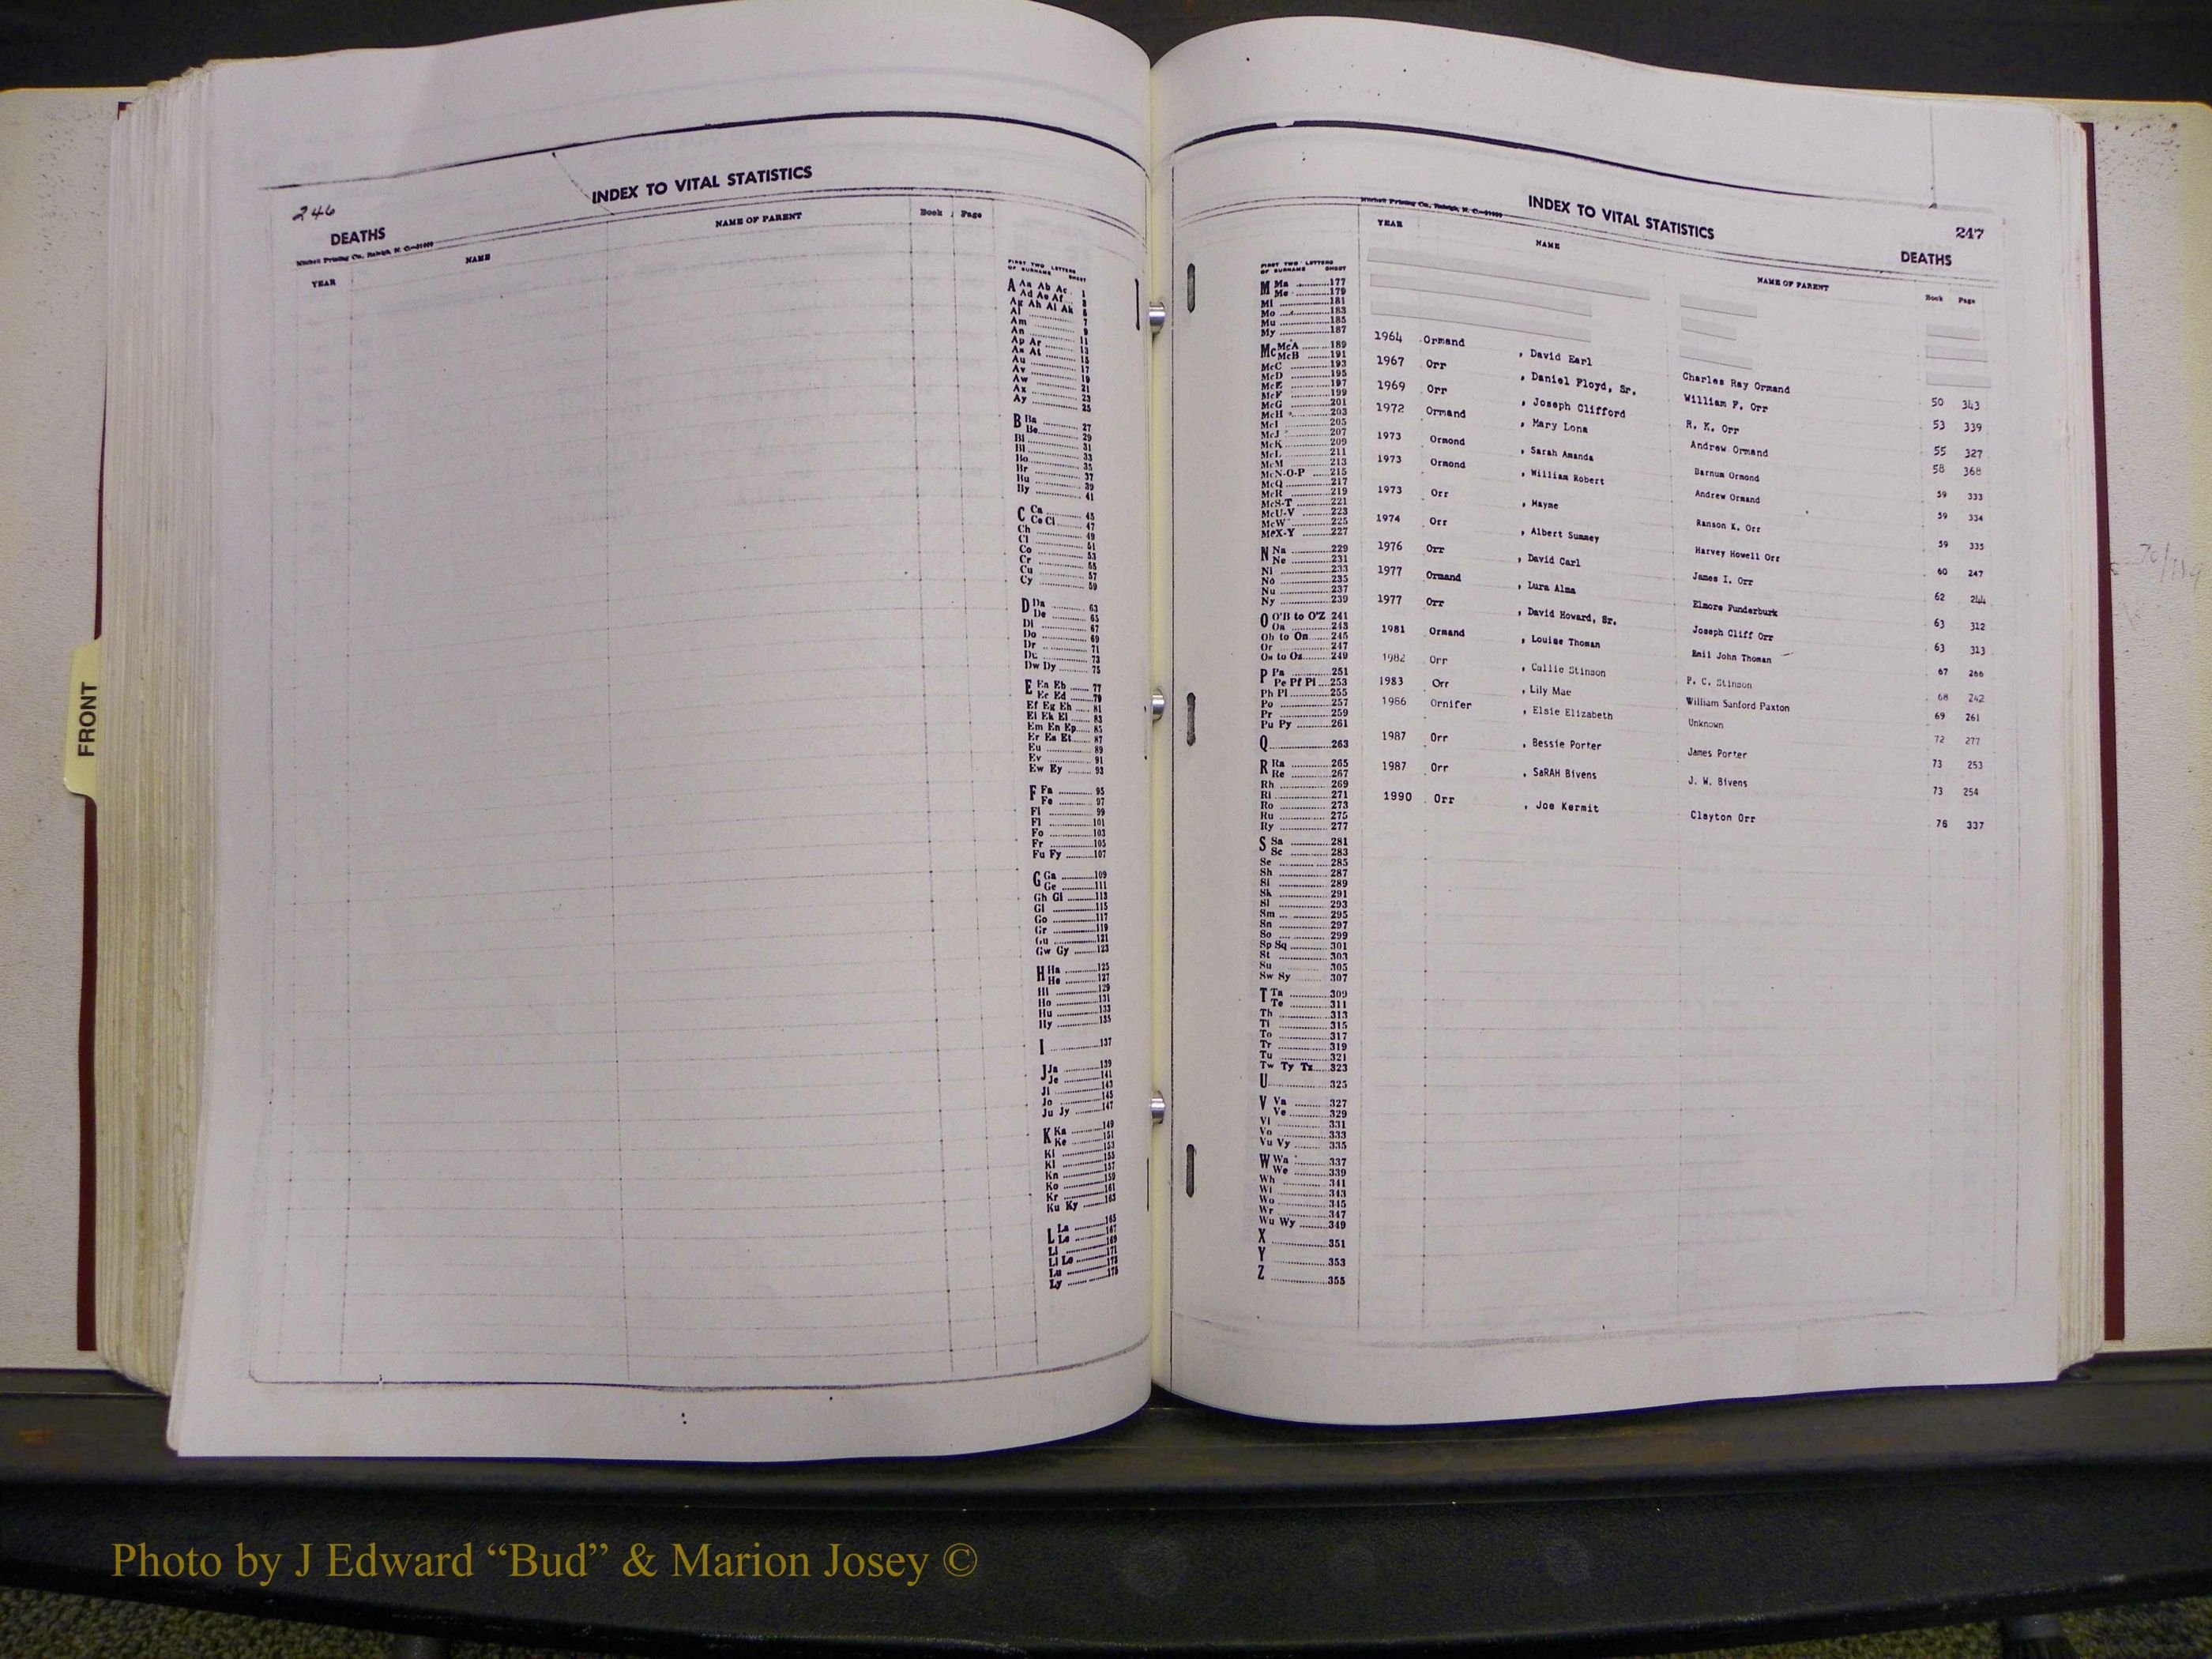 246
INDEX TO VITAL STATISTICS
DEATHS
Mitchell Printing Co., Raleigh, N. C.
YEAR
NAME
NAME OF PARENT
Book Page
FIRST TWO LETTERS
OF SURNAME SHEET
A Aa Ab Ac 1
Ad Ae Af
Ag Ah Ai Ak
Al 7
Am 9
An 11
Ap Ar 13
As At 15
Au 17
Av 19
Aw 21
Ax 23
Ay 25
B Ba 27
Be 29
Bi 31
Bl 33
Bo 35
Br 37
Bu 39
By 41
C Ca 45
Ce Ci 47
Ch 49
Cl 51
Co 53
Cr 55
Cu 57
Cy 59
D Da 63
De 65
Di 67
Do 69
Dr 71
Du 73
Dw Dy 75
E Ea Eb 77
Ec Ed 79
Ef Eg Eh 81
Ei Ek El 83
Em En Ep 85
Er Es Et 87
Eu 89
Ev 91
Ew Ey 93
F Fa 95
Fe 97
Fi 99
Fl 101
Fo 103
Fr 105
Fu Fy 107
G Ga 109
Ge 111
Gh Gi 113
Gl 115
Go 117
Gr 119
Gu 121
Gw Gy 123
H Ha 125
He 127
Hi 129
Ho 131
Hu 133
Hy 135
I 137
J Ja 139
Je 141
Ji 143
Jo 145
Ju Jy 147
K Ka 149
Ke 151
Ki 153
Kl 155
Kn 157
Ko 159
Kr 161
Ku Ky 163
L La 165
Le 167
Li 169
Ll Lo 171
Lu 173
Ly 175
FRONT
INDEX TO VITAL STATISTICS
247
DEATHS
Mitchell Printing Co., Raleigh, N. C.
YEAR
NAME
NAME OF PARENT
Book Page
FIRST TWO LETTERS
OF SURNAME SHEET
M Ma 177
Me 179
Mi 181
Mo 183
Mu 185
My 187
Mc McA 189
McB 191
McC 193
McD 195
McE 197
McF 199
McG 201
McH 203
McI 205
McJ 207
McK 209
McL 211
McM 213
McN-O-P 215
McQ 217
McR 219
McS-T 221
McU-V 223
McW 225
McX-Y 227
N Na 229
Ne 231
Ni 233
No 235
Nu 237
Ny 239
O O'B to O'Z 241
Oa 243
Ob to On 245
Or 247
Os to Oz 249
P Pa 251
Pe Pf Pi 253
Ph Pl 255
Po 257
Pr 259
Pu Py 261
Q 263
R Ra 265
Re 267
Rh 269
Ri 271
Ro 273
Ru 275
Ry 277
S Sa 281
Sc 283
Se 285
Sh 287
Si 289
Sk 291
Sl 293
Sm 295
Sn 297
So 299
Sp Sq 301
St 303
Su 305
Sw Sy 307
T Ta 309
Te 311
Th 313
Ti 315
To 317
Tr 319
Tu 321
Tw Ty Tz 323
U 325
V Va 327
Ve 329
Vi 331
Vo 333
Vu Vy 335
W Wa 337
We 339
Wh 341
Wi 343
Wo 345
Wr 347
Wu Wy 349
X 351
Y 353
Z 355
1964 Ormand , David Earl Charles Ray Ormand 50 343
1967 Orr , Daniel Floyd, Sr. William F. Orr 53 339
1969 Orr , Joseph Clifford R. K. Orr 55 327
1972 Ormand , Mary Lona Andrew Ormand 58 368
1973 Ormond , Sarah Amanda Barnum Ormond 59 333
1973 Ormond , William Robert Andrew Ormand 59 334
1973 Orr , Mayme Ranson K. Orr 59 335
1974 Orr , Albert Summey Harvey Howell Orr 60 247
1976 Orr , David Carl James I. Orr 62 244
1977 Ormand , Lura Alma Elmore Funderburk 63 312
1977 Orr , David Howard, Sr. Joseph Cliff Orr 63 313
1981 Ormand , Louise Thoman Emil John Thoman 67 266
1982 Orr , Callie Stinson P. C. Stinson 68 242
1983 Orr , Lily Mae William Sanford Paxton 69 261
1986 Ornifer , Elsie Elizabeth Unknown 72 277
1987 Orr , Bessie Porter James Porter 73 253
1987 Orr , SaRAH Bivens J. W. Bivens 73 254
1990 Orr , Joe Kermit Clayton Orr 76 337
Photo by J Edward “Bud” & Marion Josey ©